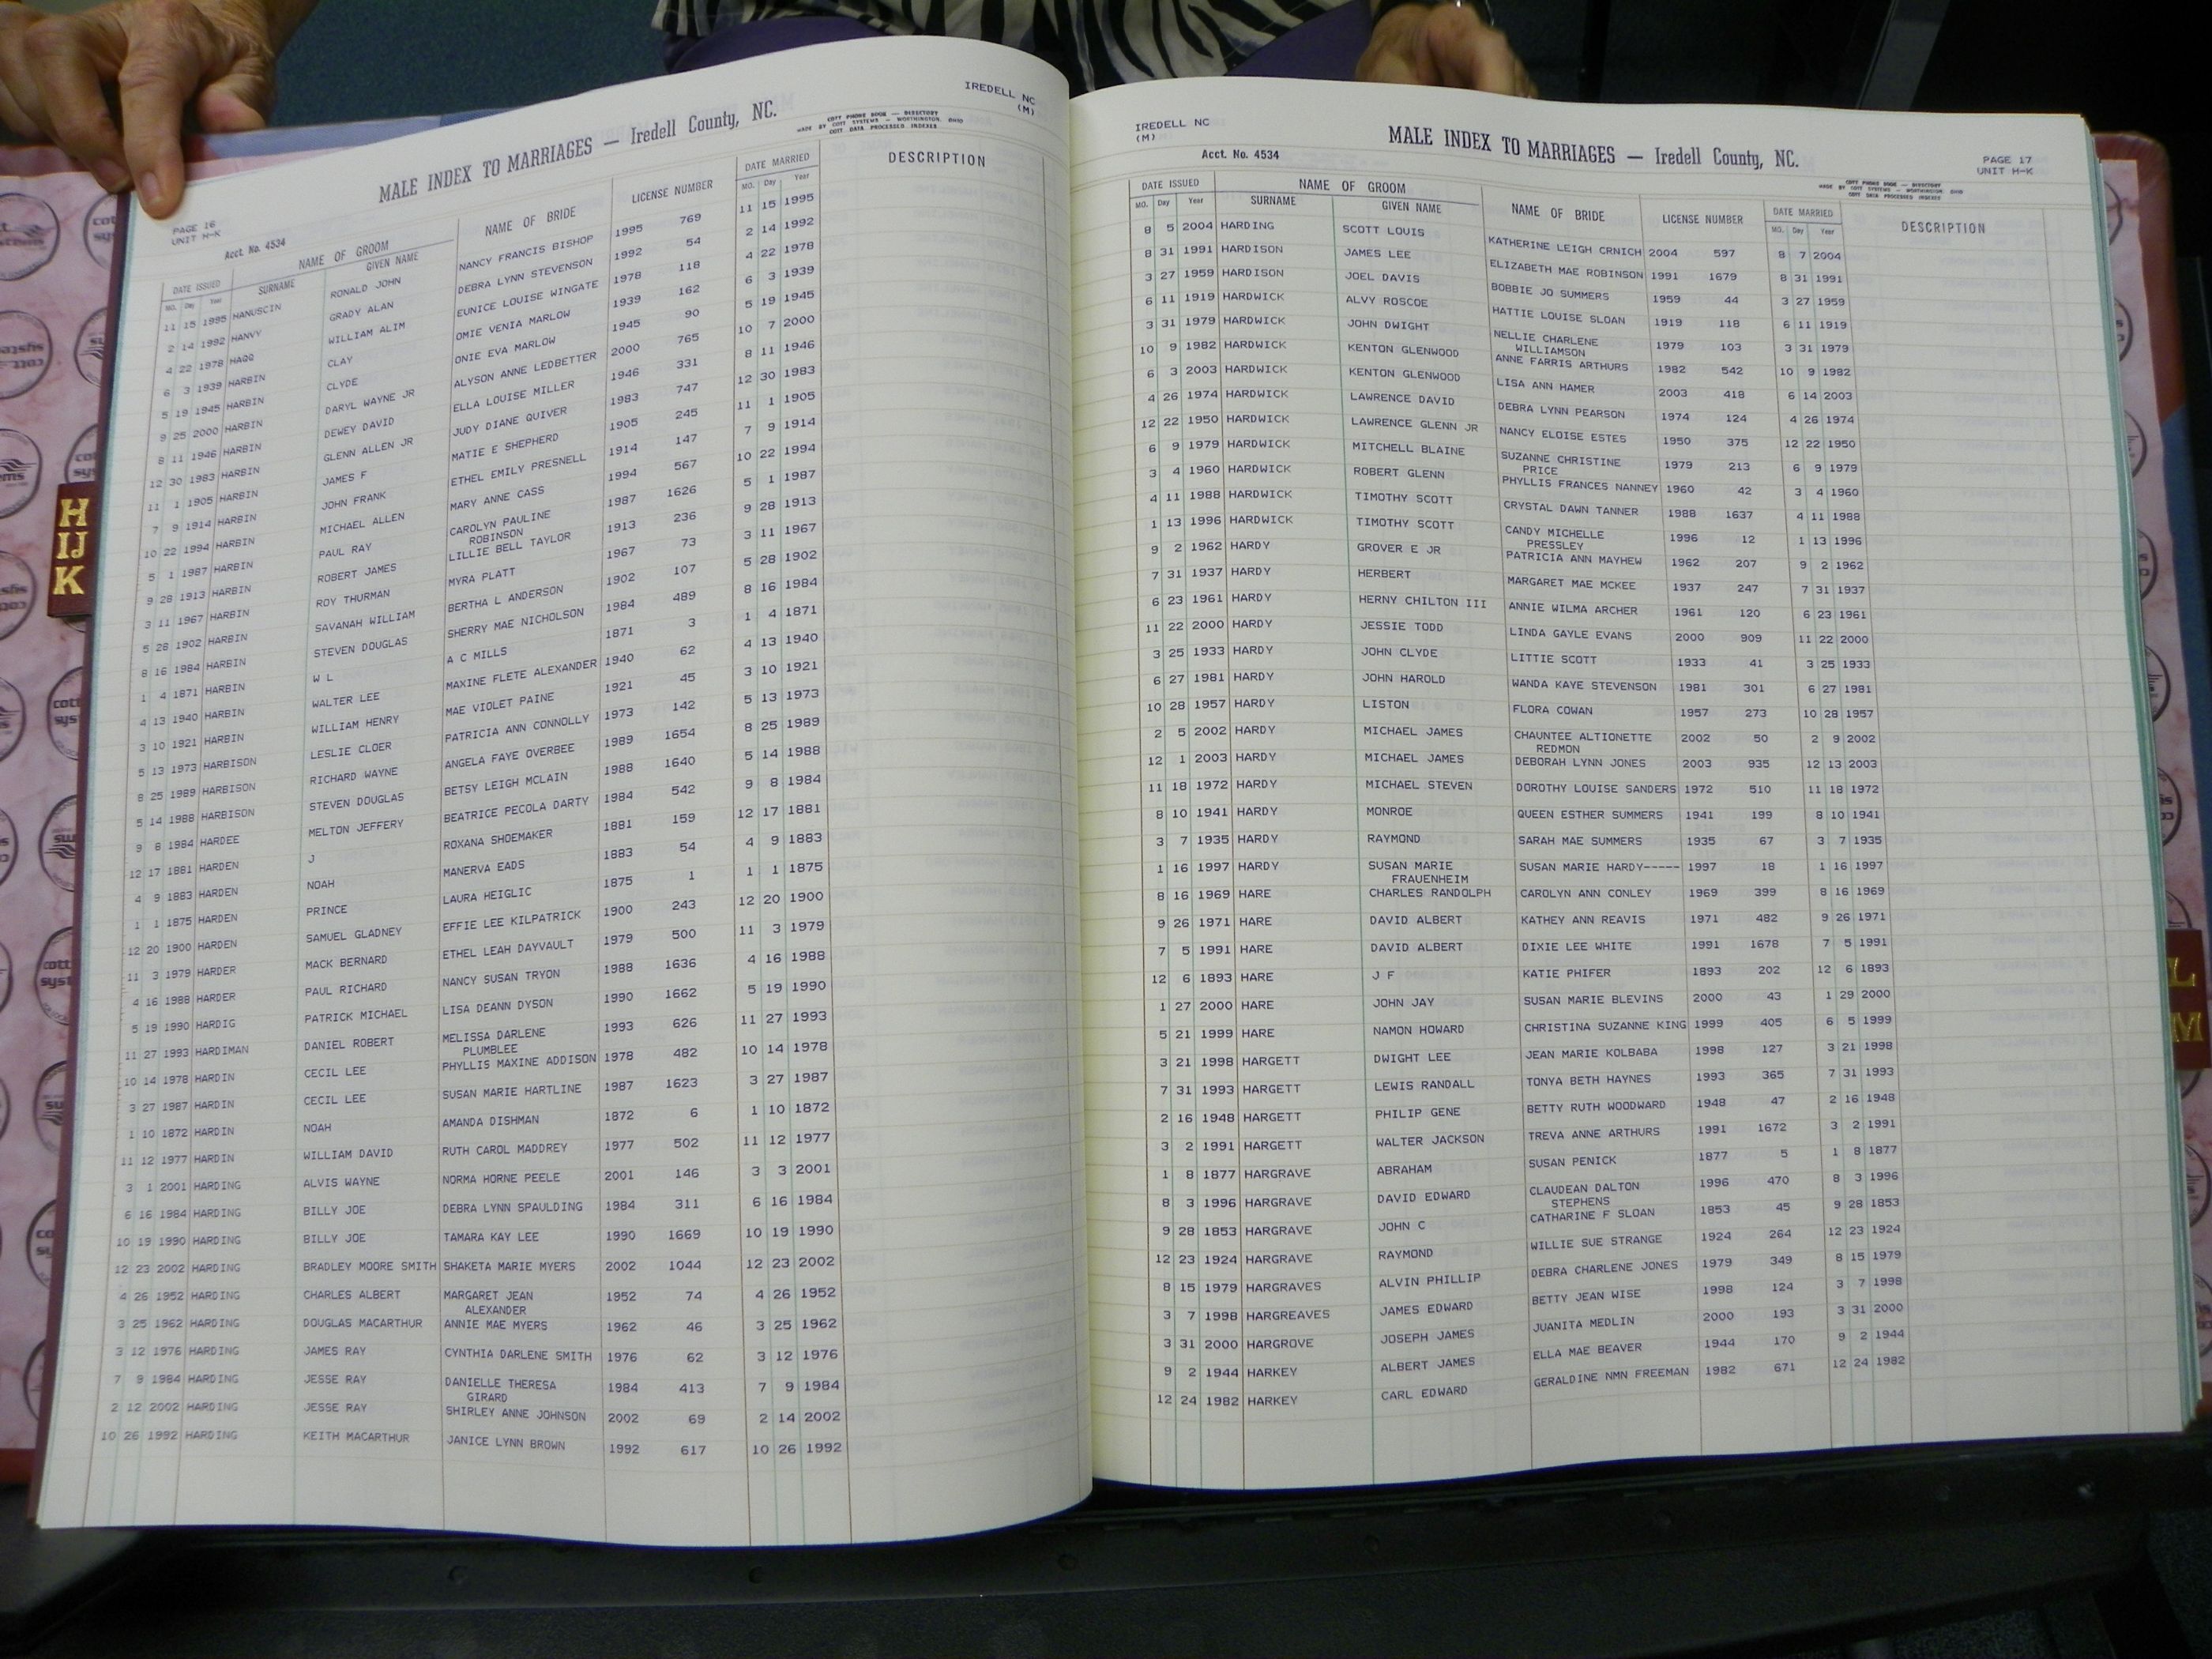 PAGE 16
UNIT H-K
MALE INDEX TO MARRIAGES — Iredell County, NC.
IREDELL NC
(M)
COTT PHONE BOOK — DIRECTORY
MADE BY COTT SYSTEMS — WORTHINGTON, OHIO
COTT DATA PROCESSED INDEXES
Acct. No. 4534
DATE ISSUED NAME OF GROOM NAME OF BRIDE LICENSE NUMBER DATE MARRIED DESCRIPTION
MO. Day Year SURNAME GIVEN NAME MO. Day Year
11 15 1995 HANUSCIN RONALD JOHN NANCY FRANCIS BISHOP 1995 769 11 15 1995
2 14 1992 HANVY GRADY ALAN DEBRA LYNN STEVENSON 1992 54 2 14 1992
4 22 1978 HAQQ WILLIAM ALIM EUNICE LOUISE WINGATE 1978 118 4 22 1978
6 3 1939 HARBIN CLAY OMIE VENIA MARLOW 1939 162 6 3 1939
5 19 1945 HARBIN CLYDE ONIE EVA MARLOW 1945 90 5 19 1945
9 25 2000 HARBIN DARYL WAYNE JR ALYSON ANNE LEDBETTER 2000 765 10 7 2000
8 11 1946 HARBIN DEWEY DAVID ELLA LOUISE MILLER 1946 331 8 11 1946
12 30 1983 HARBIN GLENN ALLEN JR JUDY DIANE QUIVER 1983 747 12 30 1983
11 1 1905 HARBIN JAMES F MATIE E SHEPHERD 1905 245 11 1 1905
7 9 1914 HARBIN JOHN FRANK ETHEL EMILY PRESNELL 1914 147 7 9 1914
10 22 1994 HARBIN MICHAEL ALLEN MARY ANNE CASS 1994 567 10 22 1994
5 1 1987 HARBIN PAUL RAY CAROLYN PAULINE 1987 1626 5 1 1987
ROBINSON
9 28 1913 HARBIN ROBERT JAMES LILLIE BELL TAYLOR 1913 236 9 28 1913
3 11 1967 HARBIN ROY THURMAN MYRA PLATT 1967 73 3 11 1967
5 28 1902 HARBIN SAVANAH WILLIAM BERTHA L ANDERSON 1902 107 5 28 1902
8 16 1984 HARBIN STEVEN DOUGLAS SHERRY MAE NICHOLSON 1984 489 8 16 1984
1 4 1871 HARBIN W L A C MILLS 1871 3 1 4 1871
4 13 1940 HARBIN WALTER LEE MAXINE FLETE ALEXANDER 1940 62 4 13 1940
3 10 1921 HARBIN WILLIAM HENRY MAE VIOLET PAINE 1921 45 3 10 1921
5 13 1973 HARBISON LESLIE CLOER PATRICIA ANN CONNOLLY 1973 142 5 13 1973
8 25 1989 HARBISON RICHARD WAYNE ANGELA FAYE OVERBEE 1989 1654 8 25 1989
5 14 1988 HARBISON STEVEN DOUGLAS BETSY LEIGH MCLAIN 1988 1640 5 14 1988
9 8 1984 HARDEE MELTON JEFFERY BEATRICE PECOLA DARTY 1984 542 9 8 1984
12 17 1881 HARDEN J ROXANA SHOEMAKER 1881 159 12 17 1881
4 9 1883 HARDEN NOAH MANERVA EADS 1883 54 4 9 1883
1 1 1875 HARDEN PRINCE LAURA HEIGLIC 1875 1 1 1 1875
12 20 1900 HARDEN SAMUEL GLADNEY EFFIE LEE KILPATRICK 1900 243 12 20 1900
11 3 1979 HARDER MACK BERNARD ETHEL LEAH DAYVAULT 1979 500 11 3 1979
4 16 1988 HARDER PAUL RICHARD NANCY SUSAN TRYON 1988 1636 4 16 1988
5 19 1990 HARDIG PATRICK MICHAEL LISA DEANN DYSON 1990 1662 5 19 1990
11 27 1993 HARDIMAN DANIEL ROBERT MELISSA DARLENE 1993 626 11 27 1993
PLUMBLEE
10 14 1978 HARDIN CECIL LEE PHYLLIS MAXINE ADDISON 1978 482 10 14 1978
3 27 1987 HARDIN CECIL LEE SUSAN MARIE HARTLINE 1987 1623 3 27 1987
1 10 1872 HARDIN NOAH AMANDA DISHMAN 1872 6 1 10 1872
11 12 1977 HARDIN WILLIAM DAVID RUTH CAROL MADDREY 1977 502 11 12 1977
3 1 2001 HARDING ALVIS WAYNE NORMA HORNE PEELE 2001 146 3 3 2001
6 16 1984 HARDING BILLY JOE DEBRA LYNN SPAULDING 1984 311 6 16 1984
10 19 1990 HARDING BILLY JOE TAMARA KAY LEE 1990 1669 10 19 1990
12 23 2002 HARDING BRADLEY MOORE SMITH SHAKETA MARIE MYERS 2002 1044 12 23 2002
4 26 1952 HARDING CHARLES ALBERT MARGARET JEAN 1952 74 4 26 1952
ALEXANDER
3 25 1962 HARDING DOUGLAS MACARTHUR ANNIE MAE MYERS 1962 46 3 25 1962
3 12 1976 HARDING JAMES RAY CYNTHIA DARLENE SMITH 1976 62 3 12 1976
7 9 1984 HARDING JESSE RAY DANIELLE THERESA 1984 413 7 9 1984
GIRARD
2 12 2002 HARDING JESSE RAY SHIRLEY ANNE JOHNSON 2002 69 2 14 2002
10 26 1992 HARDING KEITH MACARTHUR JANICE LYNN BROWN 1992 617 10 26 1992
IREDELL NC
(M)
MALE INDEX TO MARRIAGES — Iredell County, NC.
PAGE 17
UNIT H-K
Acct. No. 4534
COTT PHONE BOOK — DIRECTORY
MADE BY COTT SYSTEMS — WORTHINGTON, OHIO
COTT DATA PROCESSED INDEXES
DATE ISSUED NAME OF GROOM NAME OF BRIDE LICENSE NUMBER DATE MARRIED DESCRIPTION
MO. Day Year SURNAME GIVEN NAME MO. Day Year
8 5 2004 HARDING SCOTT LOUIS KATHERINE LEIGH CRNICH 2004 597 8 7 2004
8 31 1991 HARDISON JAMES LEE ELIZABETH MAE ROBINSON 1991 1679 8 31 1991
3 27 1959 HARDISON JOEL DAVIS BOBBIE JO SUMMERS 1959 44 3 27 1959
6 11 1919 HARDWICK ALVY ROSCOE HATTIE LOUISE SLOAN 1919 118 6 11 1919
3 31 1979 HARDWICK JOHN DWIGHT NELLIE CHARLENE 1979 103 3 31 1979
WILLIAMSON
10 9 1982 HARDWICK KENTON GLENWOOD ANNE FARRIS ARTHURS 1982 542 10 9 1982
6 3 2003 HARDWICK KENTON GLENWOOD LISA ANN HAMER 2003 418 6 14 2003
4 26 1974 HARDWICK LAWRENCE DAVID DEBRA LYNN PEARSON 1974 124 4 26 1974
12 22 1950 HARDWICK LAWRENCE GLENN JR NANCY ELOISE ESTES 1950 375 12 22 1950
6 9 1979 HARDWICK MITCHELL BLAINE SUZANNE CHRISTINE 1979 213 6 9 1979
PRICE
3 4 1960 HARDWICK ROBERT GLENN PHYLLIS FRANCES NANNEY 1960 42 3 4 1960
4 11 1988 HARDWICK TIMOTHY SCOTT CRYSTAL DAWN TANNER 1988 1637 4 11 1988
1 13 1996 HARDWICK TIMOTHY SCOTT CANDY MICHELLE 1996 12 1 13 1996
PRESSLEY
9 2 1962 HARDY GROVER E JR PATRICIA ANN MAYHEW 1962 207 9 2 1962
7 31 1937 HARDY HERBERT MARGARET MAE MCKEE 1937 247 7 31 1937
6 23 1961 HARDY HERNY CHILTON III ANNIE WILMA ARCHER 1961 120 6 23 1961
11 22 2000 HARDY JESSIE TODD LINDA GAYLE EVANS 2000 909 11 22 2000
3 25 1933 HARDY JOHN CLYDE LITTIE SCOTT 1933 41 3 25 1933
6 27 1981 HARDY JOHN HAROLD WANDA KAYE STEVENSON 1981 301 6 27 1981
10 28 1957 HARDY LISTON FLORA COWAN 1957 273 10 28 1957
2 5 2002 HARDY MICHAEL JAMES CHAUNTEE ALTIONETTE 2002 50 2 9 2002
REDMON
12 1 2003 HARDY MICHAEL JAMES DEBORAH LYNN JONES 2003 935 12 13 2003
11 18 1972 HARDY MICHAEL STEVEN DOROTHY LOUISE SANDERS 1972 510 11 18 1972
8 10 1941 HARDY MONROE QUEEN ESTHER SUMMERS 1941 199 8 10 1941
3 7 1935 HARDY RAYMOND SARAH MAE SUMMERS 1935 67 3 7 1935
1 16 1997 HARDY SUSAN MARIE SUSAN MARIE HARDY----- 1997 18 1 16 1997
FRAUENHEIM
8 16 1969 HARE CHARLES RANDOLPH CAROLYN ANN CONLEY 1969 399 8 16 1969
9 26 1971 HARE DAVID ALBERT KATHEY ANN REAVIS 1971 482 9 26 1971
7 5 1991 HARE DAVID ALBERT DIXIE LEE WHITE 1991 1678 7 5 1991
12 6 1893 HARE J F KATIE PHIFER 1893 202 12 6 1893
1 27 2000 HARE JOHN JAY SUSAN MARIE BLEVINS 2000 43 1 29 2000
5 21 1999 HARE NAMON HOWARD CHRISTINA SUZANNE KING 1999 405 6 5 1999
3 21 1998 HARGETT DWIGHT LEE JEAN MARIE KOLBABA 1998 127 3 21 1998
7 31 1993 HARGETT LEWIS RANDALL TONYA BETH HAYNES 1993 365 7 31 1993
2 16 1948 HARGETT PHILIP GENE BETTY RUTH WOODWARD 1948 47 2 16 1948
3 2 1991 HARGETT WALTER JACKSON TREVA ANNE ARTHURS 1991 1672 3 2 1991
1 8 1877 HARGRAVE ABRAHAM SUSAN PENICK 1877 5 1 8 1877
8 3 1996 HARGRAVE DAVID EDWARD CLAUDEAN DALTON 1996 470 8 3 1996
STEPHENS
9 28 1853 HARGRAVE JOHN C CATHARINE F SLOAN 1853 45 9 28 1853
12 23 1924 HARGRAVE RAYMOND WILLIE SUE STRANGE 1924 264 12 23 1924
8 15 1979 HARGRAVES ALVIN PHILLIP DEBRA CHARLENE JONES 1979 349 8 15 1979
3 7 1998 HARGREAVES JAMES EDWARD BETTY JEAN WISE 1998 124 3 7 1998
3 31 2000 HARGROVE JOSEPH JAMES JUANITA MEDLIN 2000 193 3 31 2000
9 2 1944 HARKEY ALBERT JAMES ELLA MAE BEAVER 1944 170 9 2 1944
12 24 1982 HARKEY CARL EDWARD GERALDINE NMN FREEMAN 1982 671 12 24 1982
H
IJ
K
L
M